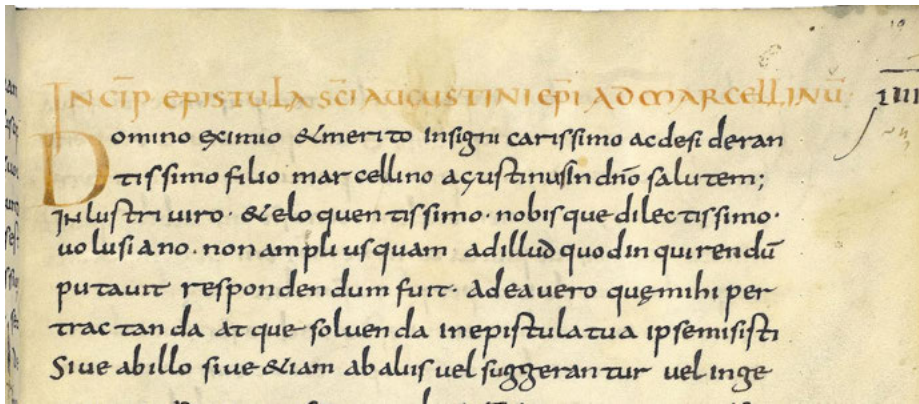 IN CIP̄ EPISTULA SC̄I AUGUSTINI EP̄I AD MARCELLINŪ
IIII
Domino eximio & merito insigni carissimo ac desideran
tissimo filio marcellino agustinus In dn̄o salutem;
Inlustri uiro · & eloquentissimo · nobisque dilectissimo ·
uolusiano · non amplius quam ad illud quod inquirendū
putauit respondendum fuit · ad ea uero quę mihi per
tractanda atque soluenda in epistula tua ipse misisti
Siue ab illo siue &iam ab aliis uel suggerantur uel inge